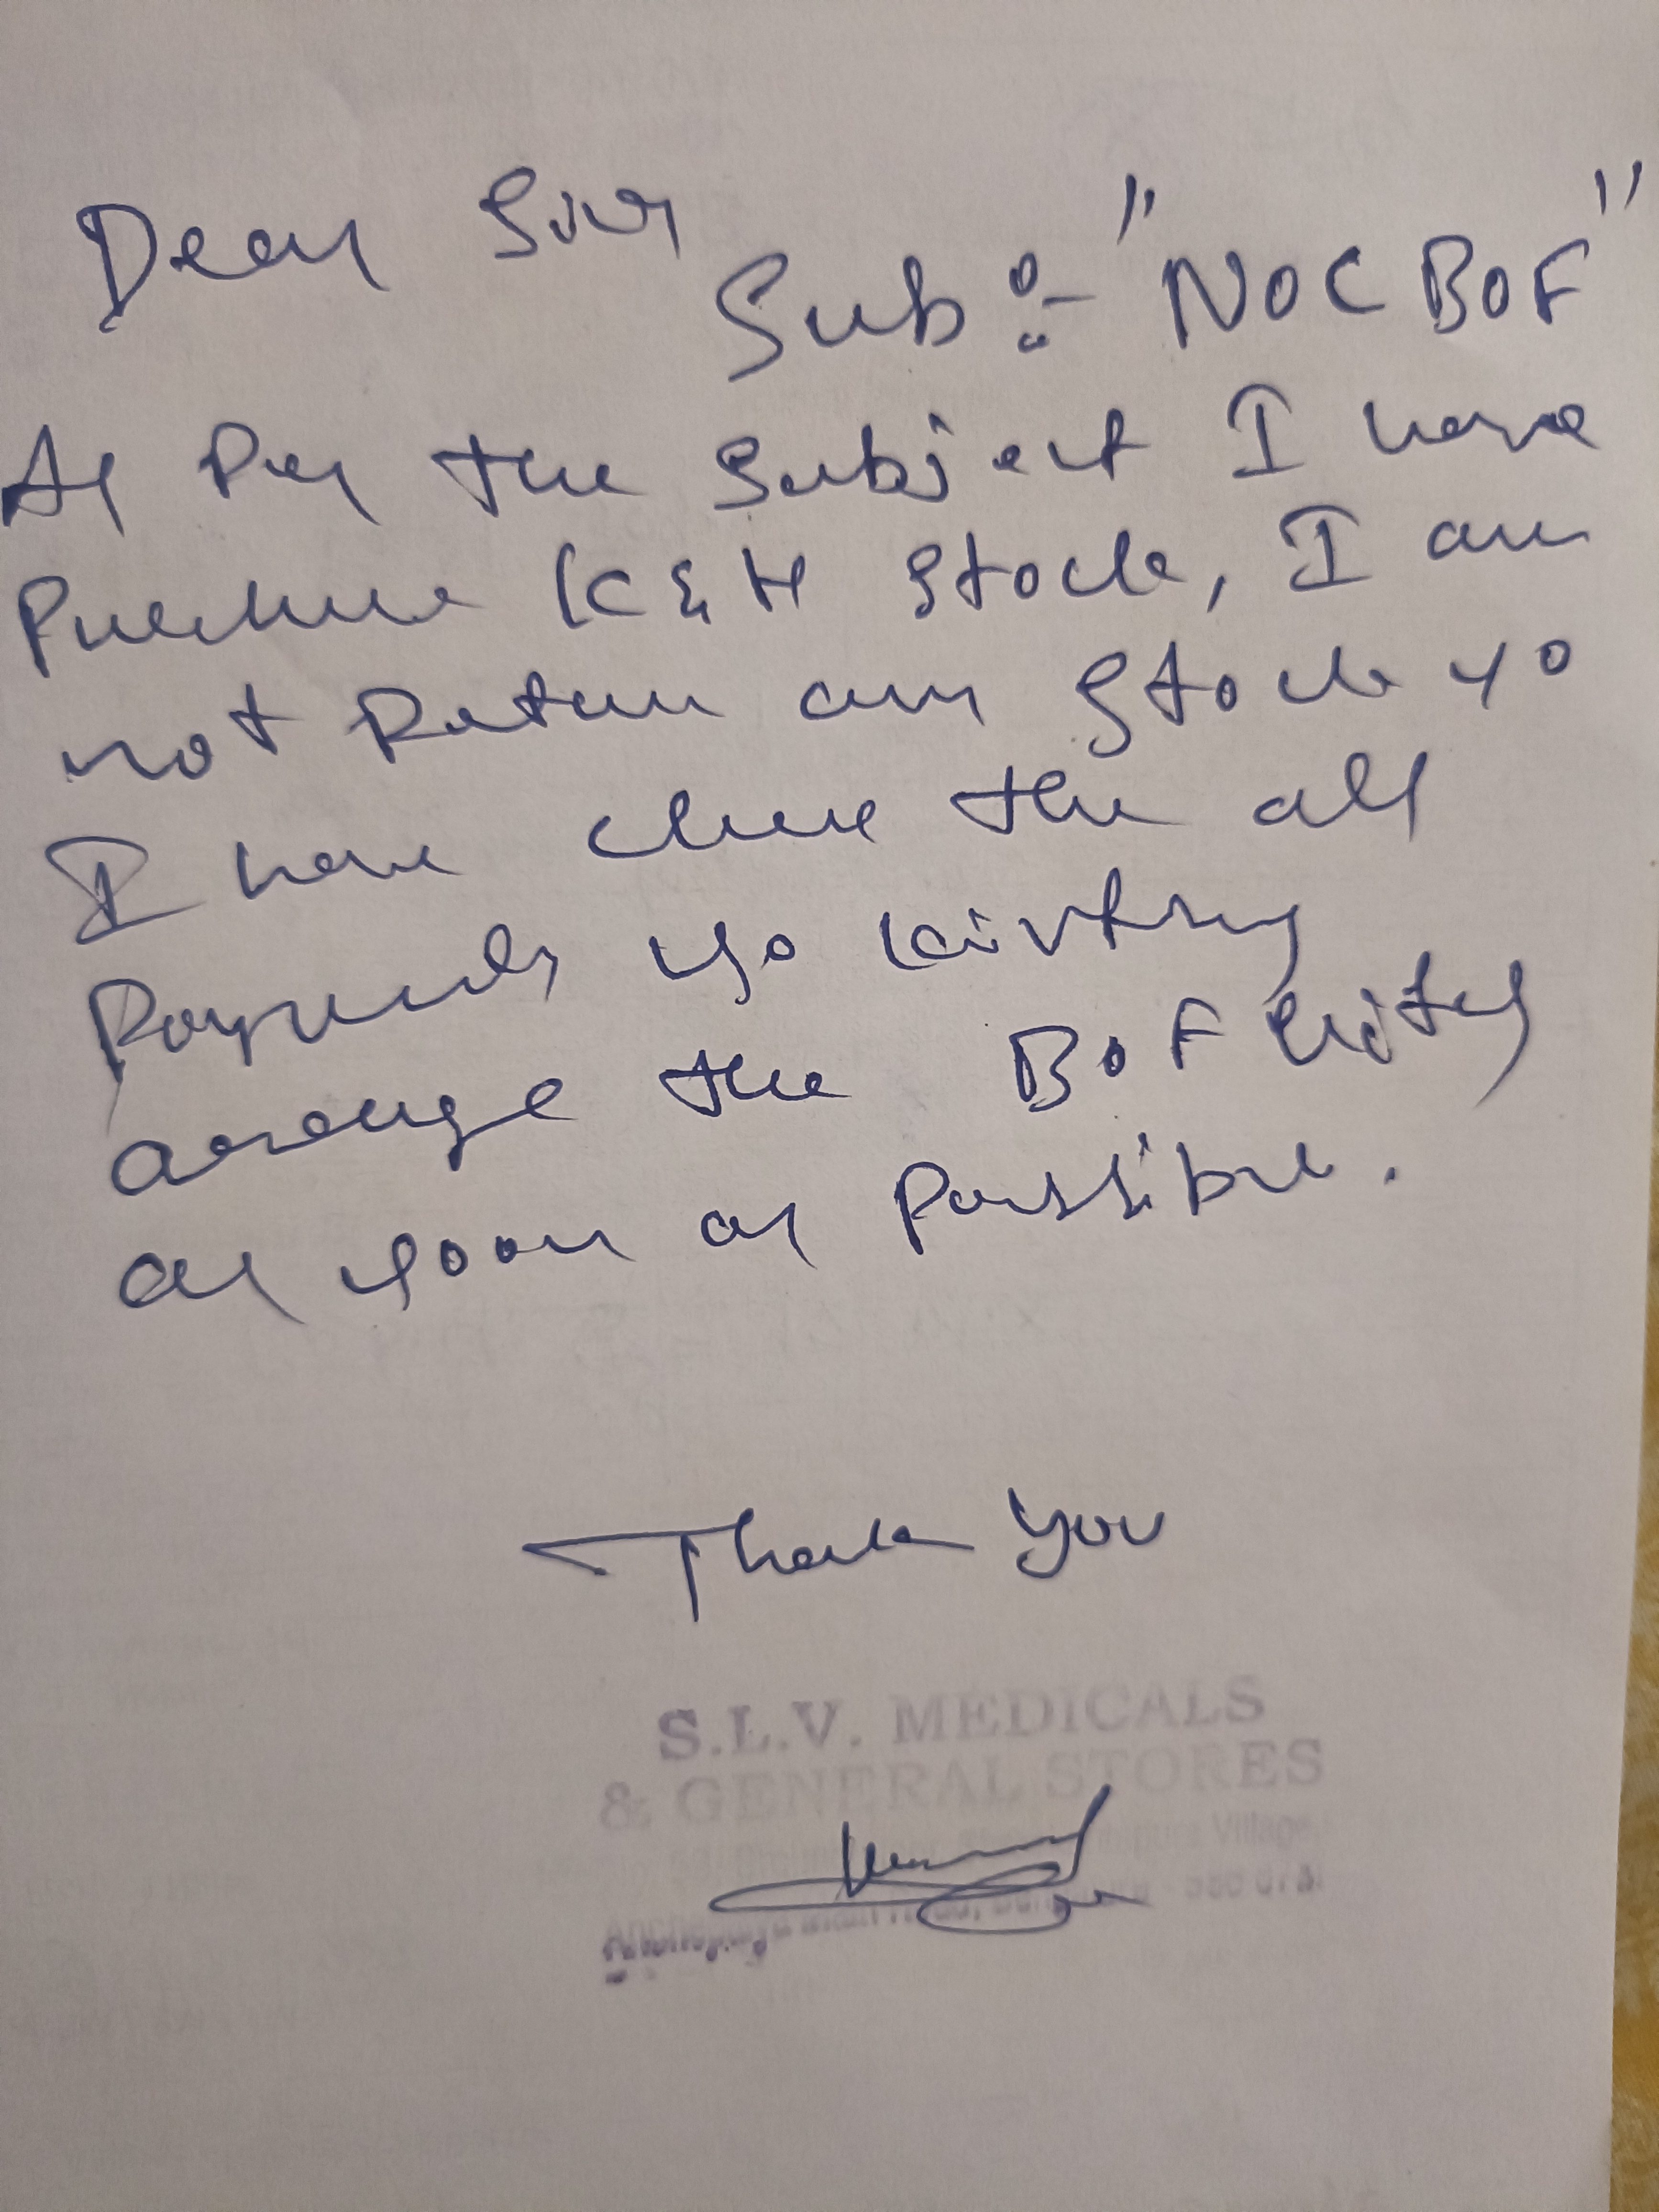 Dear Sir
Sub :- "NOC BOF"
As Per the Subject I have
Purchase K & H Stock, I am
not Return any Stock so
I have clear the all
Payments so kindly
arrange the BOF entry
as soon as Possible.
Thank You
S.L.V. MEDICALS
& GENERAL STORES
Village,
Main Road,